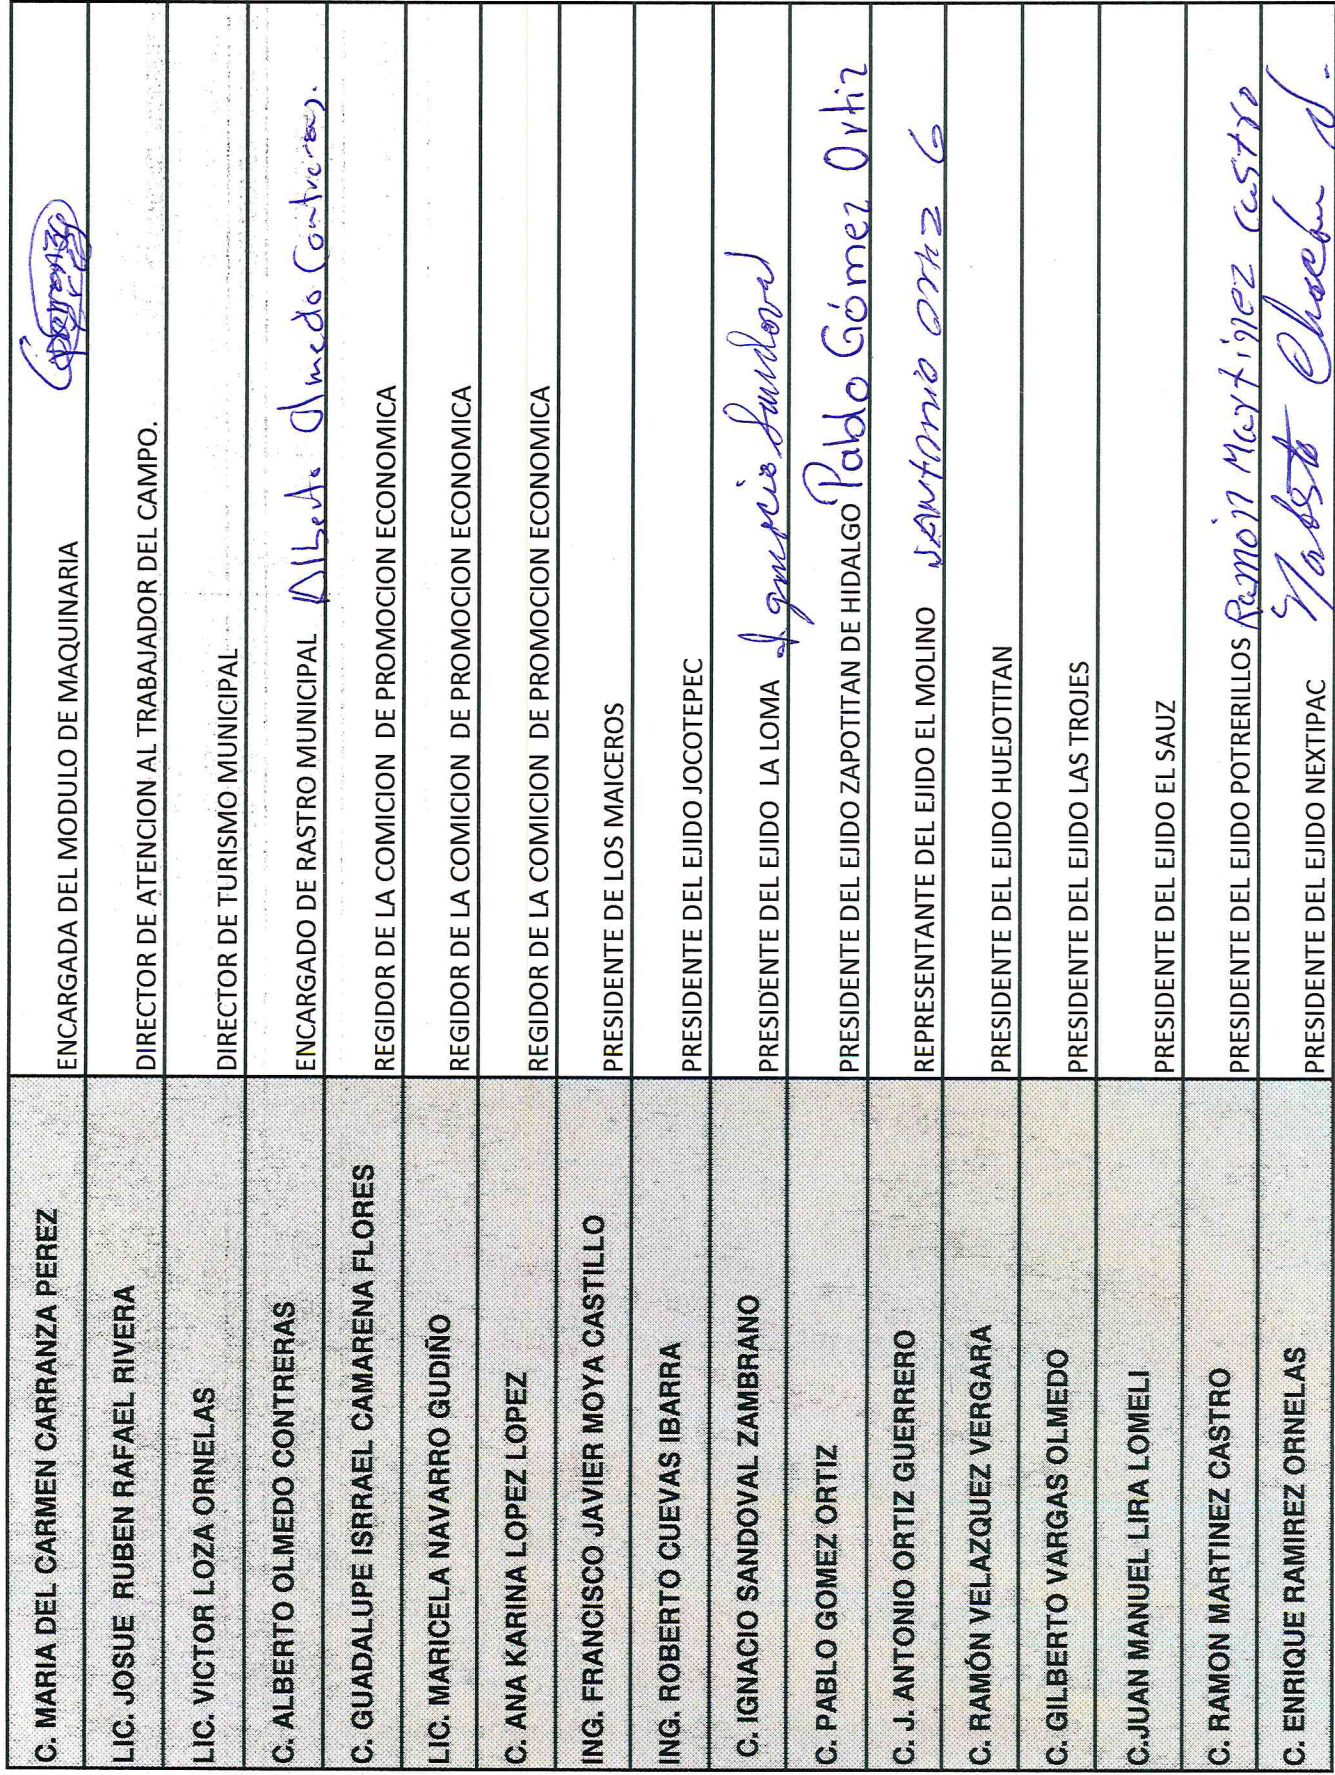 C. MARIA DEL CARMEN CARRANZA PEREZ ENCARGADA DEL MODULO DE MAQUINARIA
LIC. JOSUE RUBEN RAFAEL RIVERA DIRECTOR DE ATENCION AL TRABAJADOR DEL CAMPO.
LIC. VICTOR LOZA ORNELAS DIRECTOR DE TURISMO MUNICIPAL
C. ALBERTO OLMEDO CONTRERAS ENCARGADO DE RASTRO MUNICIPAL Alberto Olmedo Contreras.
C. GUADALUPE ISRRAEL CAMARENA FLORES REGIDOR DE LA COMICION DE PROMOCION ECONOMICA
LIC. MARICELA NAVARRO GUDIÑO REGIDOR DE LA COMICION DE PROMOCION ECONOMICA
C. ANA KARINA LOPEZ LOPEZ REGIDOR DE LA COMICION DE PROMOCION ECONOMICA
ING. FRANCISCO JAVIER MOYA CASTILLO PRESIDENTE DE LOS MAICEROS
ING. ROBERTO CUEVAS IBARRA PRESIDENTE DEL EJIDO JOCOTEPEC
C. IGNACIO SANDOVAL ZAMBRANO PRESIDENTE DEL EJIDO LA LOMA Ignacio Sandoval
C. PABLO GOMEZ ORTIZ PRESIDENTE DEL EJIDO ZAPOTITAN DE HIDALGO Pablo Gómez Ortiz
C. J. ANTONIO ORTIZ GUERRERO REPRESENTANTE DEL EJIDO EL MOLINO J ANTONIO ORTIZ G
C. RAMÓN VELAZQUEZ VERGARA PRESIDENTE DEL EJIDO HUEJOTITAN
C. GILBERTO VARGAS OLMEDO PRESIDENTE DEL EJIDO LAS TROJES
C.JUAN MANUEL LIRA LOMELI PRESIDENTE DEL EJIDO EL SAUZ
C. RAMON MARTINEZ CASTRO PRESIDENTE DEL EJIDO POTRERILLOS Ramón Martinez Castro
C. ENRIQUE RAMIREZ ORNELAS PRESIDENTE DEL EJIDO NEXTIPAC